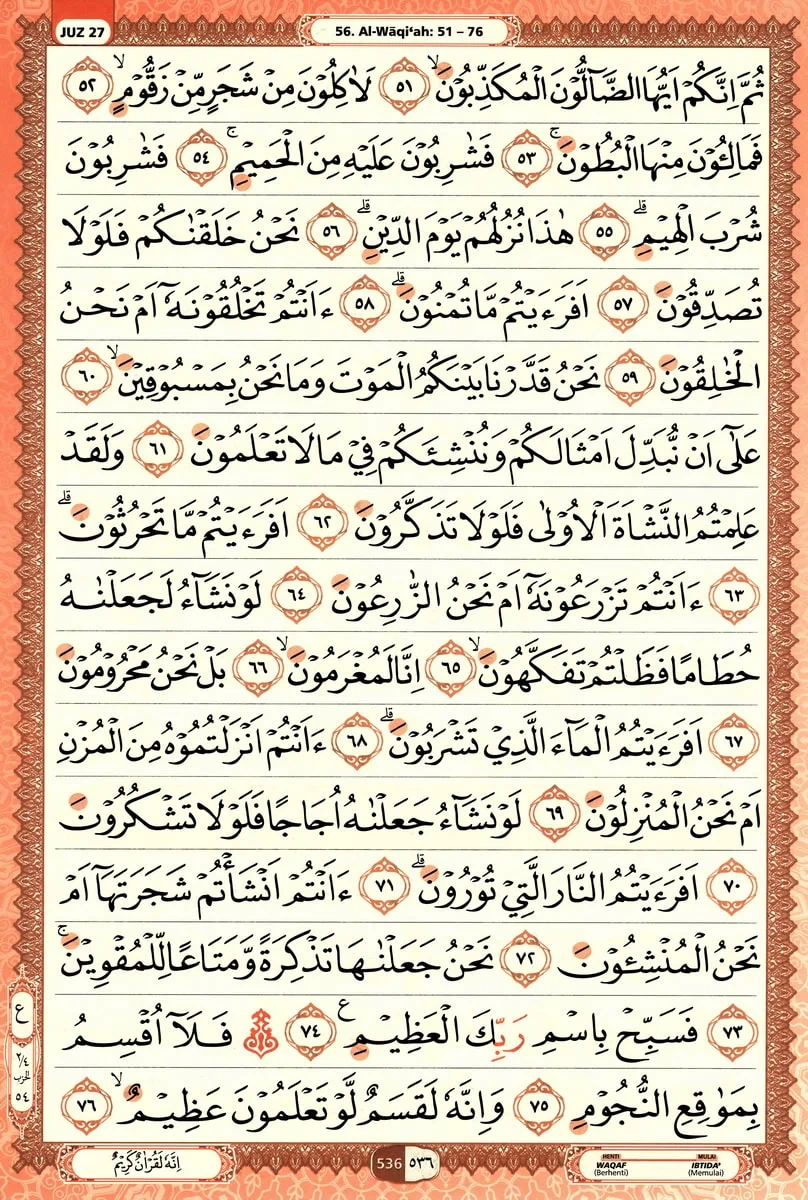 JUZ 27
56. Al-Wāqi‘ah: 51 – 76
ثُمَّ اِنَّكُمْ اَيُّهَا الضَّاۤلُّوْنَ الْمُكَذِّبُوْنَۙ ٥١ لَاٰكِلُوْنَ مِنْ شَجَرٍ مِّنْ زَقُّوْمٍۙ ٥٢
فَمَالِـُٔوْنَ مِنْهَا الْبُطُوْنَۚ ٥٣ فَشٰرِبُوْنَ عَلَيْهِ مِنَ الْحَمِيْمِۚ ٥٤ فَشٰرِبُوْنَ
شُرْبَ الْهِيْمِۗ ٥٥ هٰذَا نُزُلُهُمْ يَوْمَ الدِّيْنِۗ ٥٦ نَحْنُ خَلَقْنٰكُمْ فَلَوْلَا
تُصَدِّقُوْنَ ٥٧ اَفَرَءَيْتُمْ مَّا تُمْنُوْنَۗ ٥٨ ءَاَنْتُمْ تَخْلُقُوْنَهٗٓ اَمْ نَحْنُ
الْخٰلِقُوْنَ ٥٩ نَحْنُ قَدَّرْنَا بَيْنَكُمُ الْمَوْتَ وَمَا نَحْنُ بِمَسْبُوْقِيْنَۙ ٦٠
عَلٰٓى اَنْ نُّبَدِّلَ اَمْثَالَكُمْ وَنُنْشِئَكُمْ فِيْ مَا لَا تَعْلَمُوْنَ ٦١ وَلَقَدْ
عَلِمْتُمُ النَّشْاَةَ الْاُوْلٰى فَلَوْلَا تَذَكَّرُوْنَ ٦٢ اَفَرَءَيْتُمْ مَّا تَحْرُثُوْنَۗ
٦٣ ءَاَنْتُمْ تَزْرَعُوْنَهٗٓ اَمْ نَحْنُ الزّٰرِعُوْنَ ٦٤ لَوْ نَشَاۤءُ لَجَعَلْنٰهُ
حُطَامًا فَظَلْتُمْ تَفَكَّهُوْنَۙ ٦٥ اِنَّا لَمُغْرَمُوْنَۙ ٦٦ بَلْ نَحْنُ مَحْرُوْمُوْنَ
٦٧ اَفَرَءَيْتُمُ الْمَاۤءَ الَّذِيْ تَشْرَبُوْنَۗ ٦٨ ءَاَنْتُمْ اَنْزَلْتُمُوْهُ مِنَ الْمُزْنِ
اَمْ نَحْنُ الْمُنْزِلُوْنَ ٦٩ لَوْ نَشَاۤءُ جَعَلْنٰهُ اُجَاجًا فَلَوْلَا تَشْكُرُوْنَ
٧٠ اَفَرَءَيْتُمُ النَّارَ الَّتِيْ تُوْرُوْنَۗ ٧١ ءَاَنْتُمْ اَنْشَأْتُمْ شَجَرَتَهَآ اَمْ
نَحْنُ الْمُنْشِـُٔوْنَ ٧٢ نَحْنُ جَعَلْنٰهَا تَذْكِرَةً وَّمَتَاعًا لِّلْمُقْوِيْنَۚ
٧٣ فَسَبِّحْ بِاسْمِ رَبِّكَ الْعَظِيْمِ ع ٧٤ فَلَآ اُقْسِمُ
بِمَوٰقِعِ النُّجُوْمِ ٧٥ وَاِنَّهٗ لَقَسَمٌ لَّوْ تَعْلَمُوْنَ عَظِيْمٌۙ ٧٦
ع
٢/٤
الحزب
٥٤
اِنَّهٗ لَقُرْاٰنٌ كَرِيْمٌ
536 ٥٣٦
HENTI
WAQAF
(Berhenti)
MULAI
IBTIDA’
(Memulai)